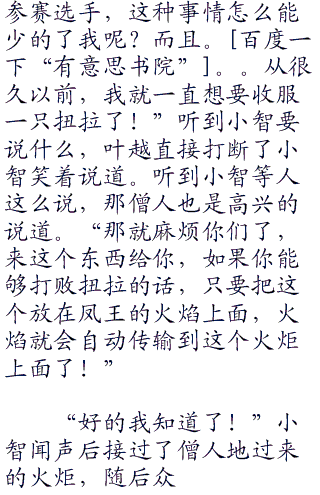 参赛选手，这种事情怎么能
少的了我呢？而且。[百度一
下“有意思书院”]。。从很
久以前，我就一直想要收服
一只扭拉了！”听到小智要
说什么，叶越直接打断了小
智笑着说道。听到小智等人
这么说，那僧人也是高兴的
说道。“那就麻烦你们了，
来这个东西给你，如果你能
够打败扭拉的话，只要把这
个放在凤王的火焰上面，火
焰就会自动传输到这个火炬
上面了！”
“好的我知道了！”小
智闻声后接过了僧人地过来
的火炬，随后众